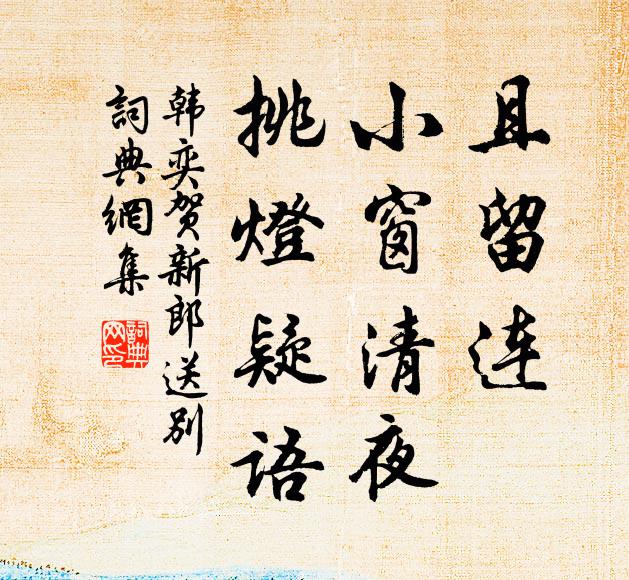 且留连
小窗清夜
挑燈疑語
韩奕贺新郎送别
詞典網集
詞典網印